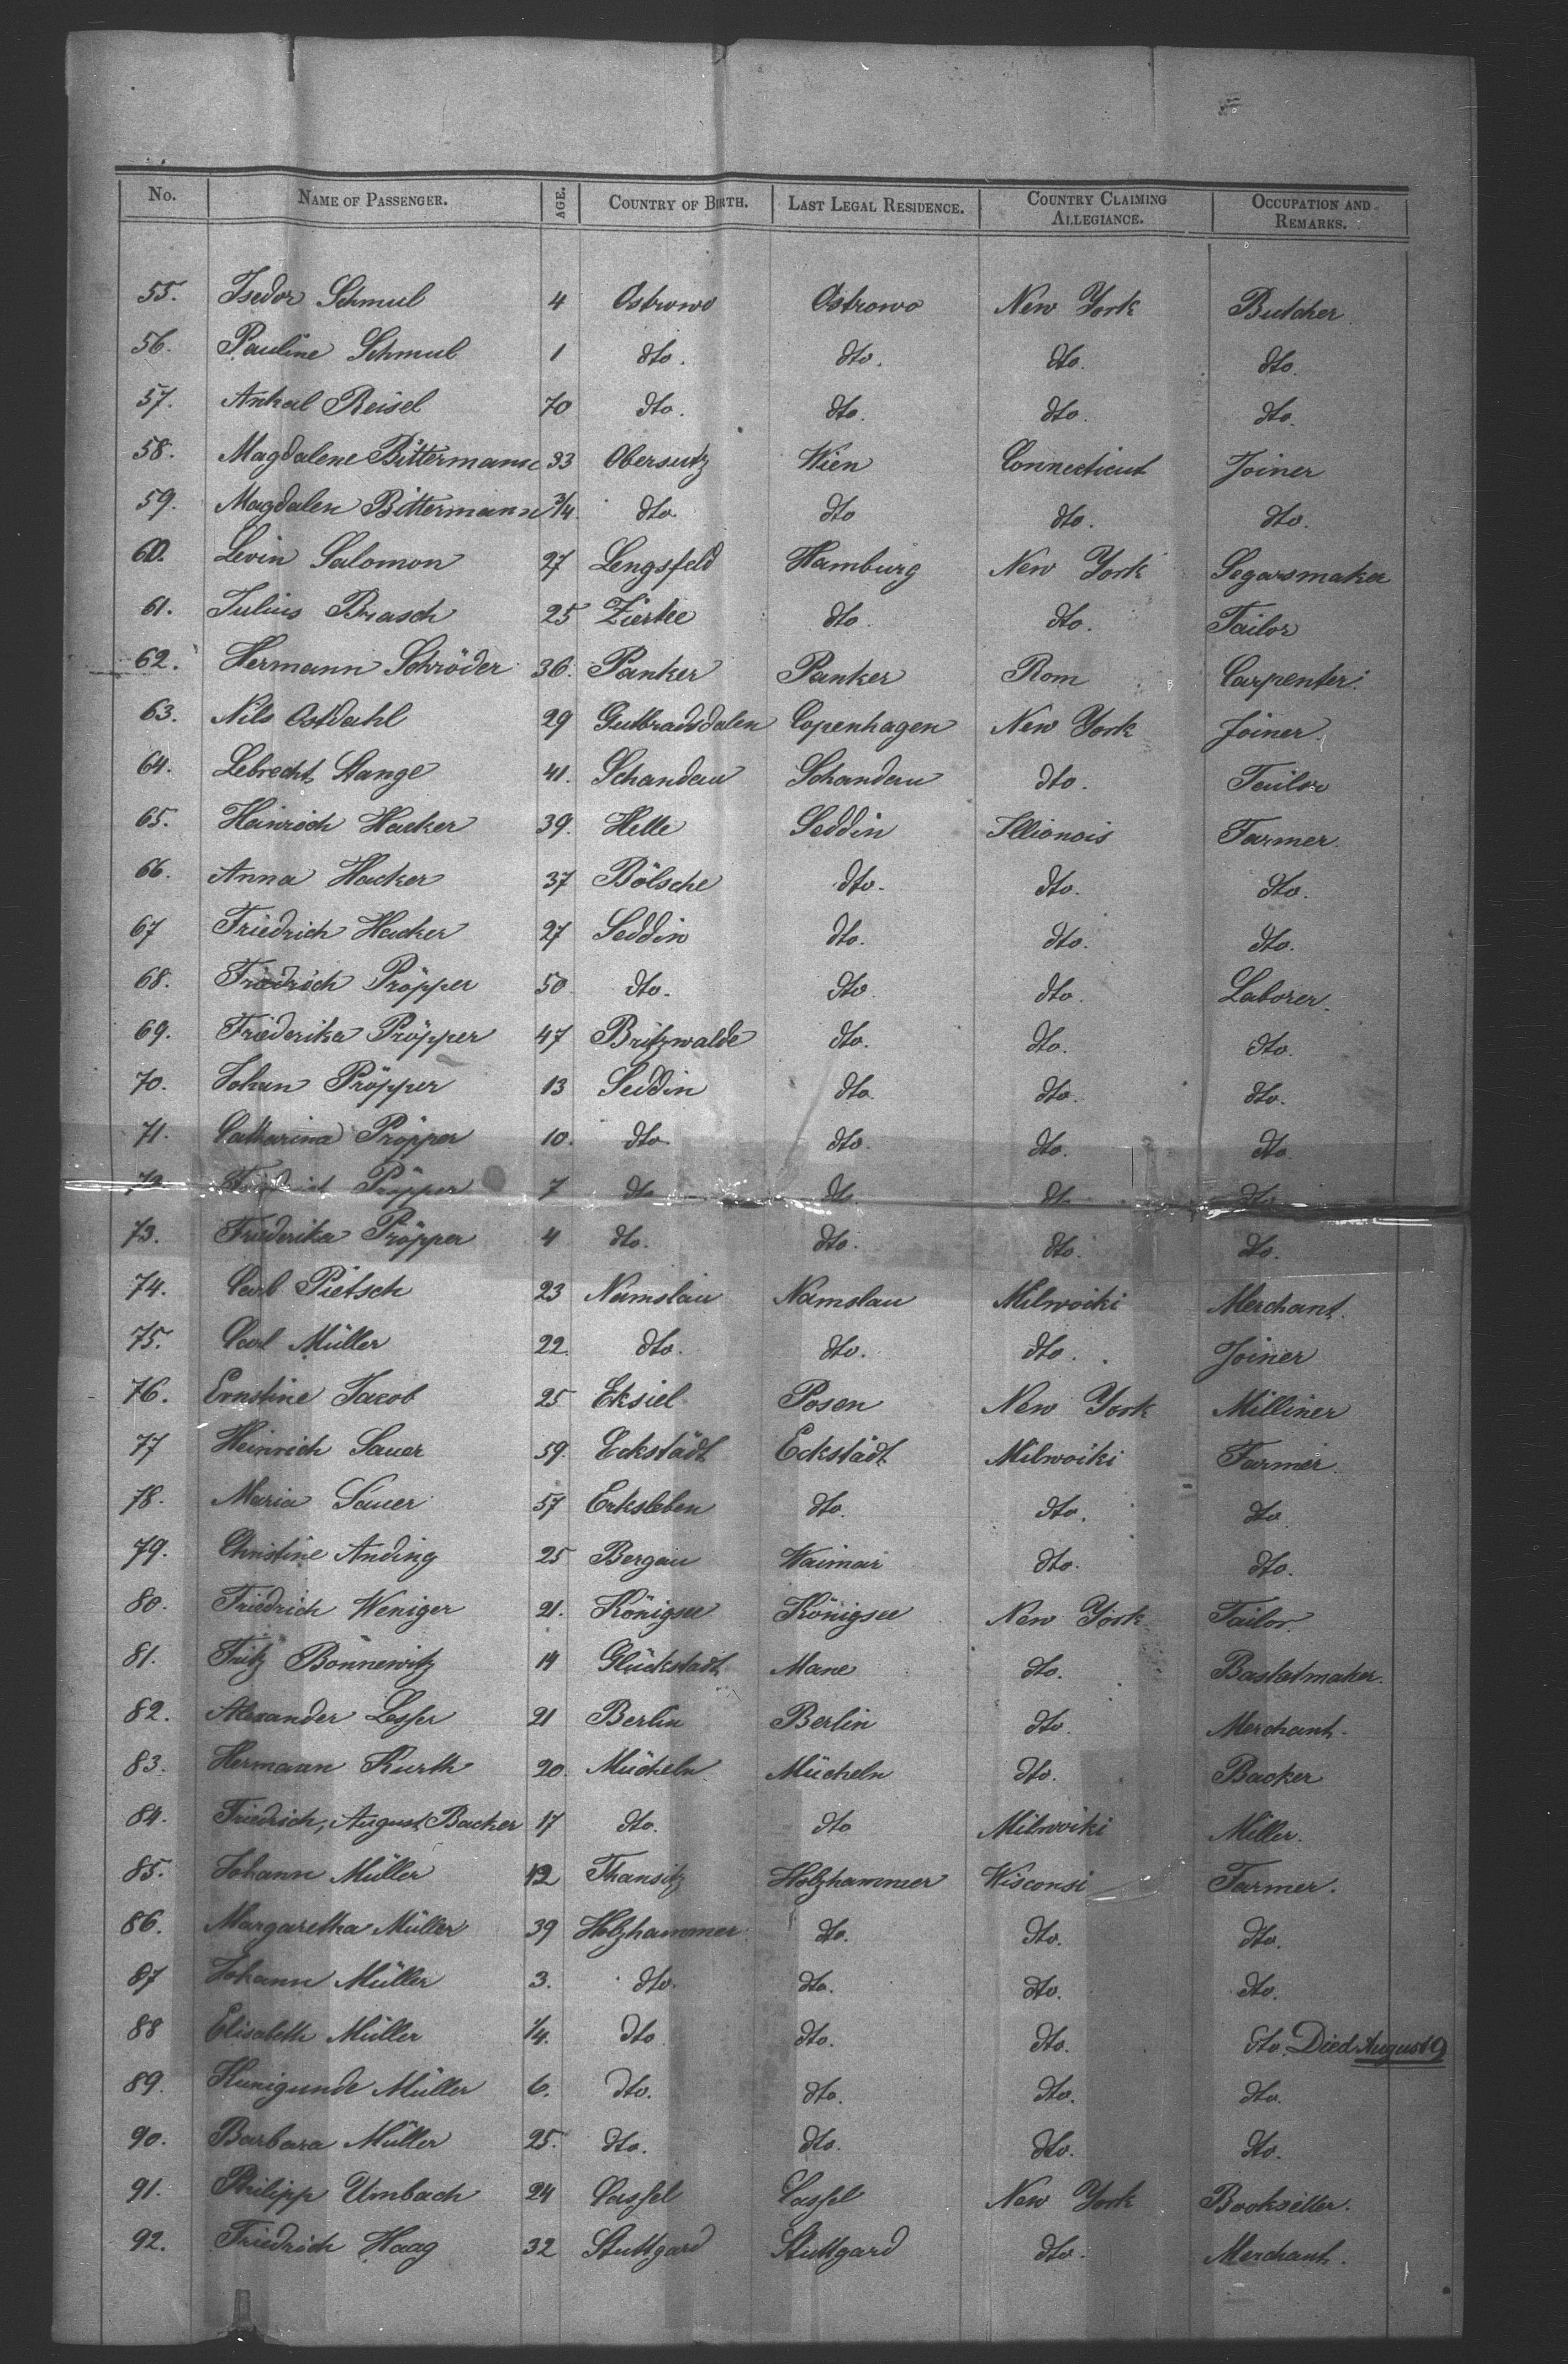 No. NAME OF PASSENGER. AGE. COUNTRY OF BIRTH. LAST LEGAL RESIDENCE. COUNTRY CLAIMING ALLEGIANCE. OCCUPATION AND REMARKS.
55. Isedor Schmul 4 Ostrowo Ostrowo New York Butcher
56. Pauline Schmul 1 dto. dto. dto. dto.
57. Ankal Reisel 70 dto. dto. dto. dto.
58. Magdalene Bittermann 33 Obersutz Wien Connecticut Joiner
59. Magdalen Bittermann 3/4 dto. dto dto. dto.
60. Levin Salomon 27 Lengsfeld Hamburg New York Segarsmaker
61. Julius Brasch 25 Zierke dto. dto. Tailor
62. Hermann Schröder 36. Panker Panker Rom Carpenter.
63. Nils Ostdahl 29 Gudbradsdalen Copenhagen New York Joiner
64. Lebrecht Stange 41. Schandau Schandau dto. Tailor
65. Heinrich Hacker 39. Helle Seddin Illionois Farmer.
66. Anna Hacker 37 Bölsche dto. dto. dto.
67 Friedrich Hacker 27 Seddin dto. dto. dto.
68. Friedrich Pröpper 50 dto. dto. dto. Laborer.
69. Friederika Pröpper 47 Britzwalde dto. dto. dto.
70. Johan Pröpper 13 Seddin dto. dto. dto.
71. Catharina Pröpper 10. dto. dto. dto. dto.
72. Pröpper 7 dto dto. dt. dto
73. Friederika Pröpper 4 dto. dto. dto. dto.
74. Carl Pietsch 23 Namslau Namslau Milwoiki Merchant.
75. Carl Müller 22. dto. dto. dto. Joiner
76. Ernstine Jacob 25 Eksiel Posen New York Milliner
77 Heinrich Sauer 59. Eckstädt Eckstädt Milwoiki Farmer.
78. Maria Sauer 57 Erksleben dto. dto. dto
79. Christine Anding 25 Bergau Waimar dto. dto.
80. Friedrich Weniger 21. Königsee Königsee New York Tailor.
81. Fritz Bönnewitz 14 Glückstadt Mane dto. Basketmaker.
82. Alexander Lesser 21 Berlin Berlin dto. Merchant.
83. Hermann Kurth 20. Mücheln Mücheln dto. Backer
84. Friedrich, August Backer 17 dto. dto Milwoiki Miller.
85. Johann Müller 42 Thansitz Holzhammer Wisconsi Farmer.
86. Margaretha Müller 39 Holzhammer dto. dto. dto.
87 Johann Müller 3. dto. dto. dto. dto.
88 Elisabeth Müller 1/4. dto dto. dto. dto. Died August 9
89. Kunigunde Müller 6. dto. dto. dto. dto.
90. Barbara Müller 25. dto. dto. dto. dto.
91. Philipp Umbach 24 Cassel Cassel New York Bookseller.
92. Friedrich Haag 32 Stuttgard Stuttgard dto. Merchant.